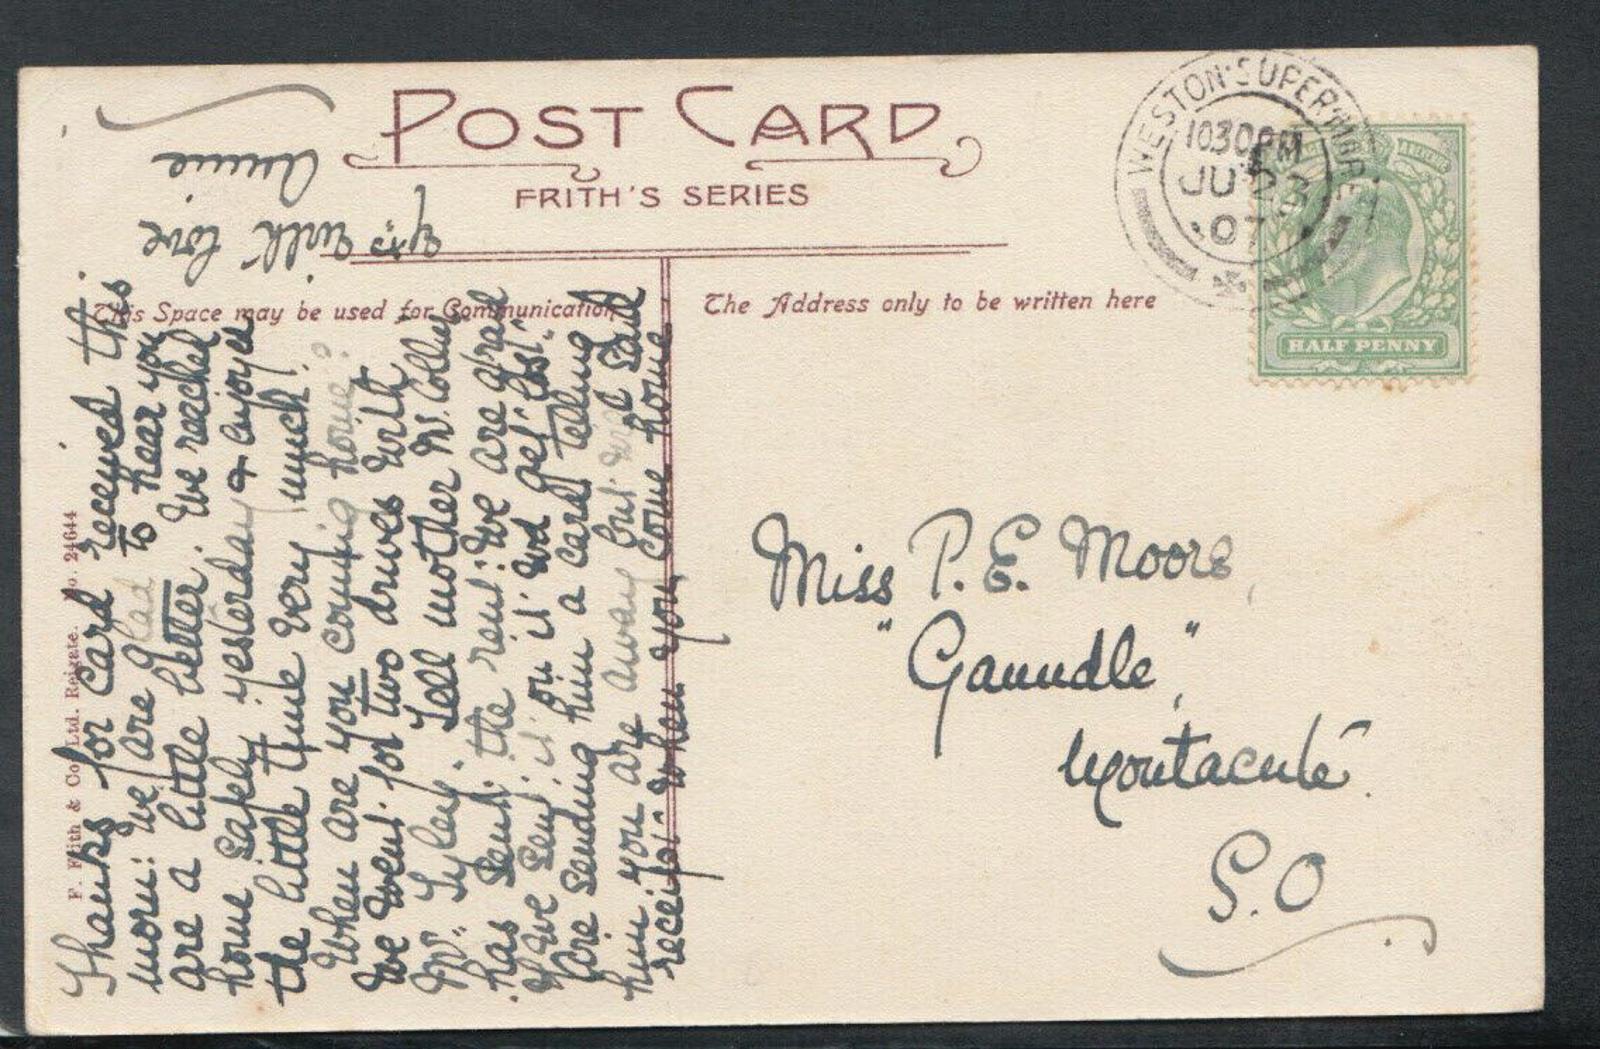 POST CARD
FRITH'S SERIES
WESTON-SUPER-MARE
10.30 PM
JU 23
07
HALF PENNY
This Space may be used for Communication
The Address only to be written here
F. Frith & Co Ltd. Reigate. No. 24644
Thanks for card received this
morn: We are glad to hear you
are a little better. We reached
home safely yesterday & enjoyed
the little time very much!
When are you coming home?
We went for two drives with
Mr. Tyley. Tell mother Mr. Colley
has sent the rent: We are afraid
if we sent it on it wd get lost.
We are sending him a card telling
him you are away but wd send
receipt when you come home
with love
Annie
Miss P. E. Moore,
"Gaundle",
Montacute.
S.O